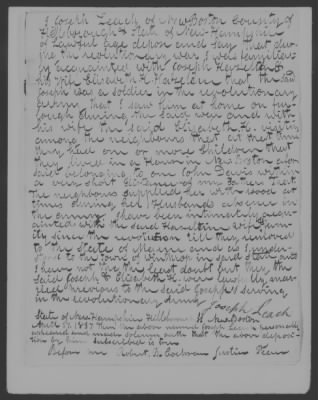 I Joseph Leach of New Boston County of
Hillsborough & State of New Hampshire
of lawful age depose and say that du-
ring the revolutionary war I was familiar-
ly acquainted with Joseph Hazelton
his wife Elizabeth H. Hazelton that the said
Joseph was a soldier in the revolutionary
army that I saw him at home on fur-
lough during the said war and with
his wife the said Elizabeth H. visiting
among the neighbours that at that time
they had one or more children that
they lived in a House in New Boston afore
said belonging to one John Davis within
a very short distance of my father that
the neighbours supplied her with wood at
times during her Husbands absence in
the army I have been intimately acqua-
inted with the said Hazelton & family
since the revolution till they removed
to the State of Maine and as I under-
stand to the town of in said State and
I have not the least doubt but they the
said Joseph & Elizabeth H. were lawfully mar-
ried previous to the said Joseph's serving
in the revolutionary army
Joseph Leach
State of New Hampshire Hillsborough New Boston
April 17, 1837 Then the above named Joseph Leach personally
appeared and made solemn oath that the above deposi-
tion by him subscribed is true
Before me Robert B. Cochran Justice Peace